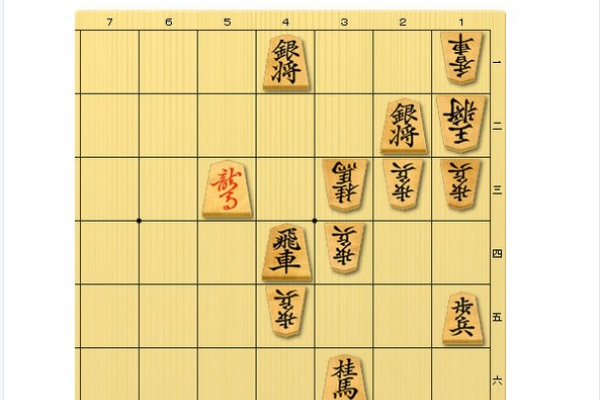 7 6 5 4 3 2 1
銀将 香車 一
銀将 王将 二
龍馬 桂馬 歩兵 歩兵 三
飛車 歩兵 四
歩兵 歩兵 五
桂馬 六